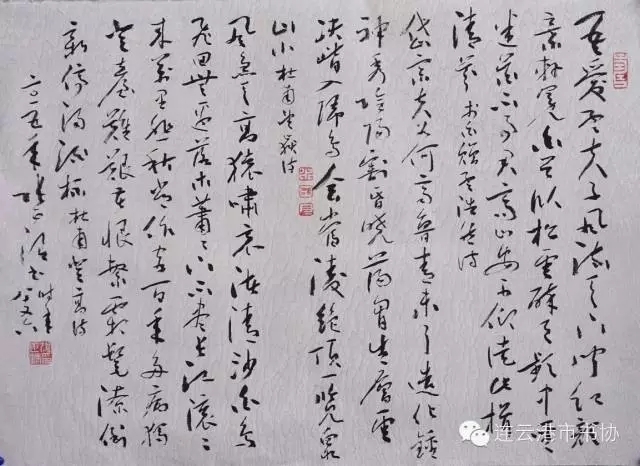 吾爱孟夫子风流天下闻红颜
弃轩冕白首卧松云醉月频中圣
迷花不事君高山安可仰徒此揖
清芬 李白赠孟浩然诗
岱宗夫如何齐鲁青未了造化钟
神秀阴阳割昏晓荡胸生层云
决眥入归鸟会当凌绝顶一览众
山小 杜甫望岳诗
风急天高猿啸哀渚清沙白鸟
飞回无边落木萧萧下不尽长江滚滚
来万里悲秋常作客百年多病独
登台艰难苦恨繁霜鬓潦倒
新停浊酒杯 杜甫登高诗
二〇一五年 书 时年八十六
连云港市书协